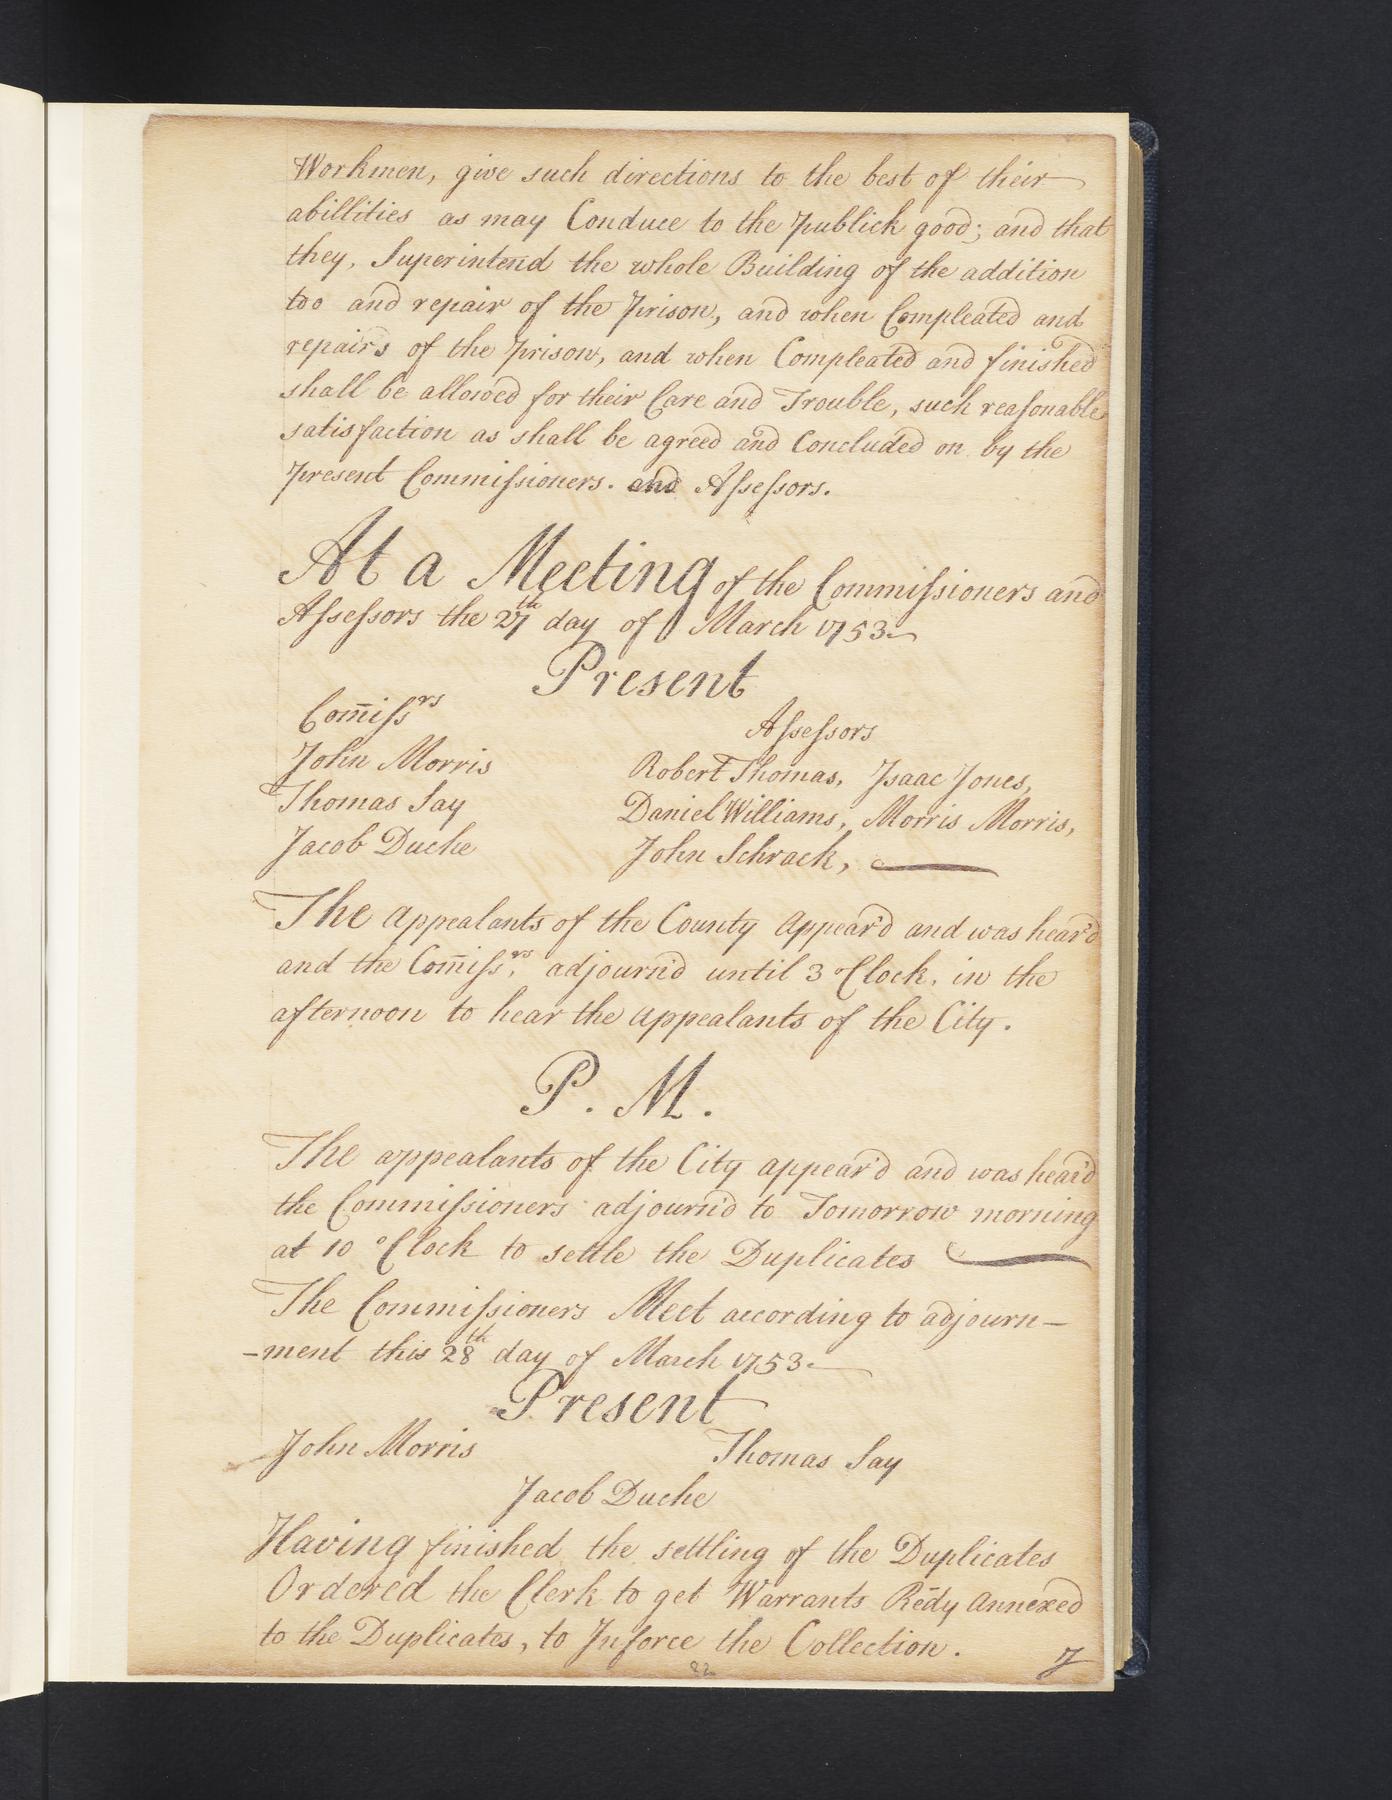 Workmen, give such directions to the best of their
abillities as may Conduce to the publick good; and that
they, Superintend the whole Building of the addition
too and repair of the prison, and when Compleated and
repairs of the prison, and when Compleated and finished
shall be allowed for their Care and Trouble, such reasonable
satisfaction as shall be agreed and Concluded on by the
present Commissioners. and Assessors.
At a Meeting of the Commissioners and
Assessors the 27th day of March 1753
Present
Com̄issrs
Assessors
John Morris
Robert Thomas, Isaac Jones,
Thomas Say
Daniel Williams, Morris Morris,
Jacob Duche
John Schrack,
The appealants of the County appear'd and was hear'd
and the Com̄issrs, adjourn'd until 3 oClock, in the
afternoon to hear the appealants of the City.
P. M.
The appealants of the City appear'd and was hear'd
the Commissioners adjourn'd to Tomorrow morning
at 10 oClock to settle the Duplicates
The Commissioners Meet according to adjourn-
-ment this 28th day of March 1753
Present
John Morris
Thomas Say
Jacob Duche
Having finished the settling of the Duplicates
Ordered the Clerk to get Warrants Rēdy annexed
to the Duplicates, to Inforce the Collection.
22